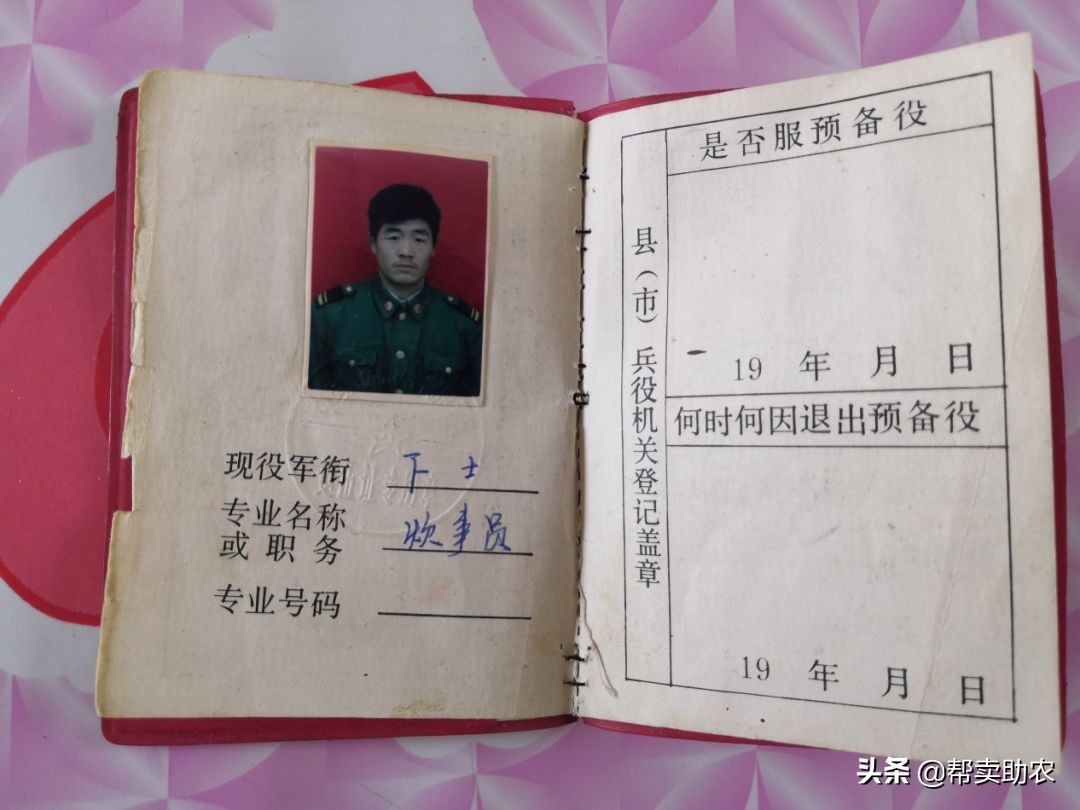 现役军衔 下士
专业名称
或职务 炊事员
专业号码
县(市)兵役机关登记盖章
是否服预备役
19 年 月 日
何时何因退出预备役
19 年 月 日
头条 @帮卖助农